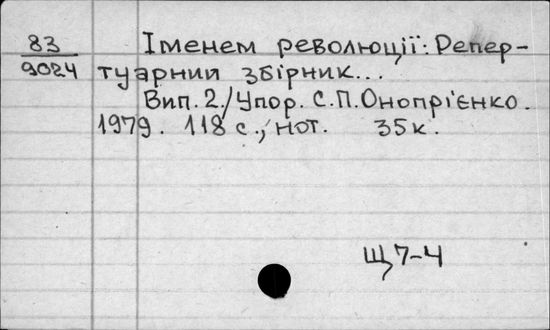 83 Іменем революції: Репер-
9024 туарний збірник...
Вип. 2./Упор. С.П.Онопрієнко.
1979. 118 с., нот. 35к.
Щ7-4